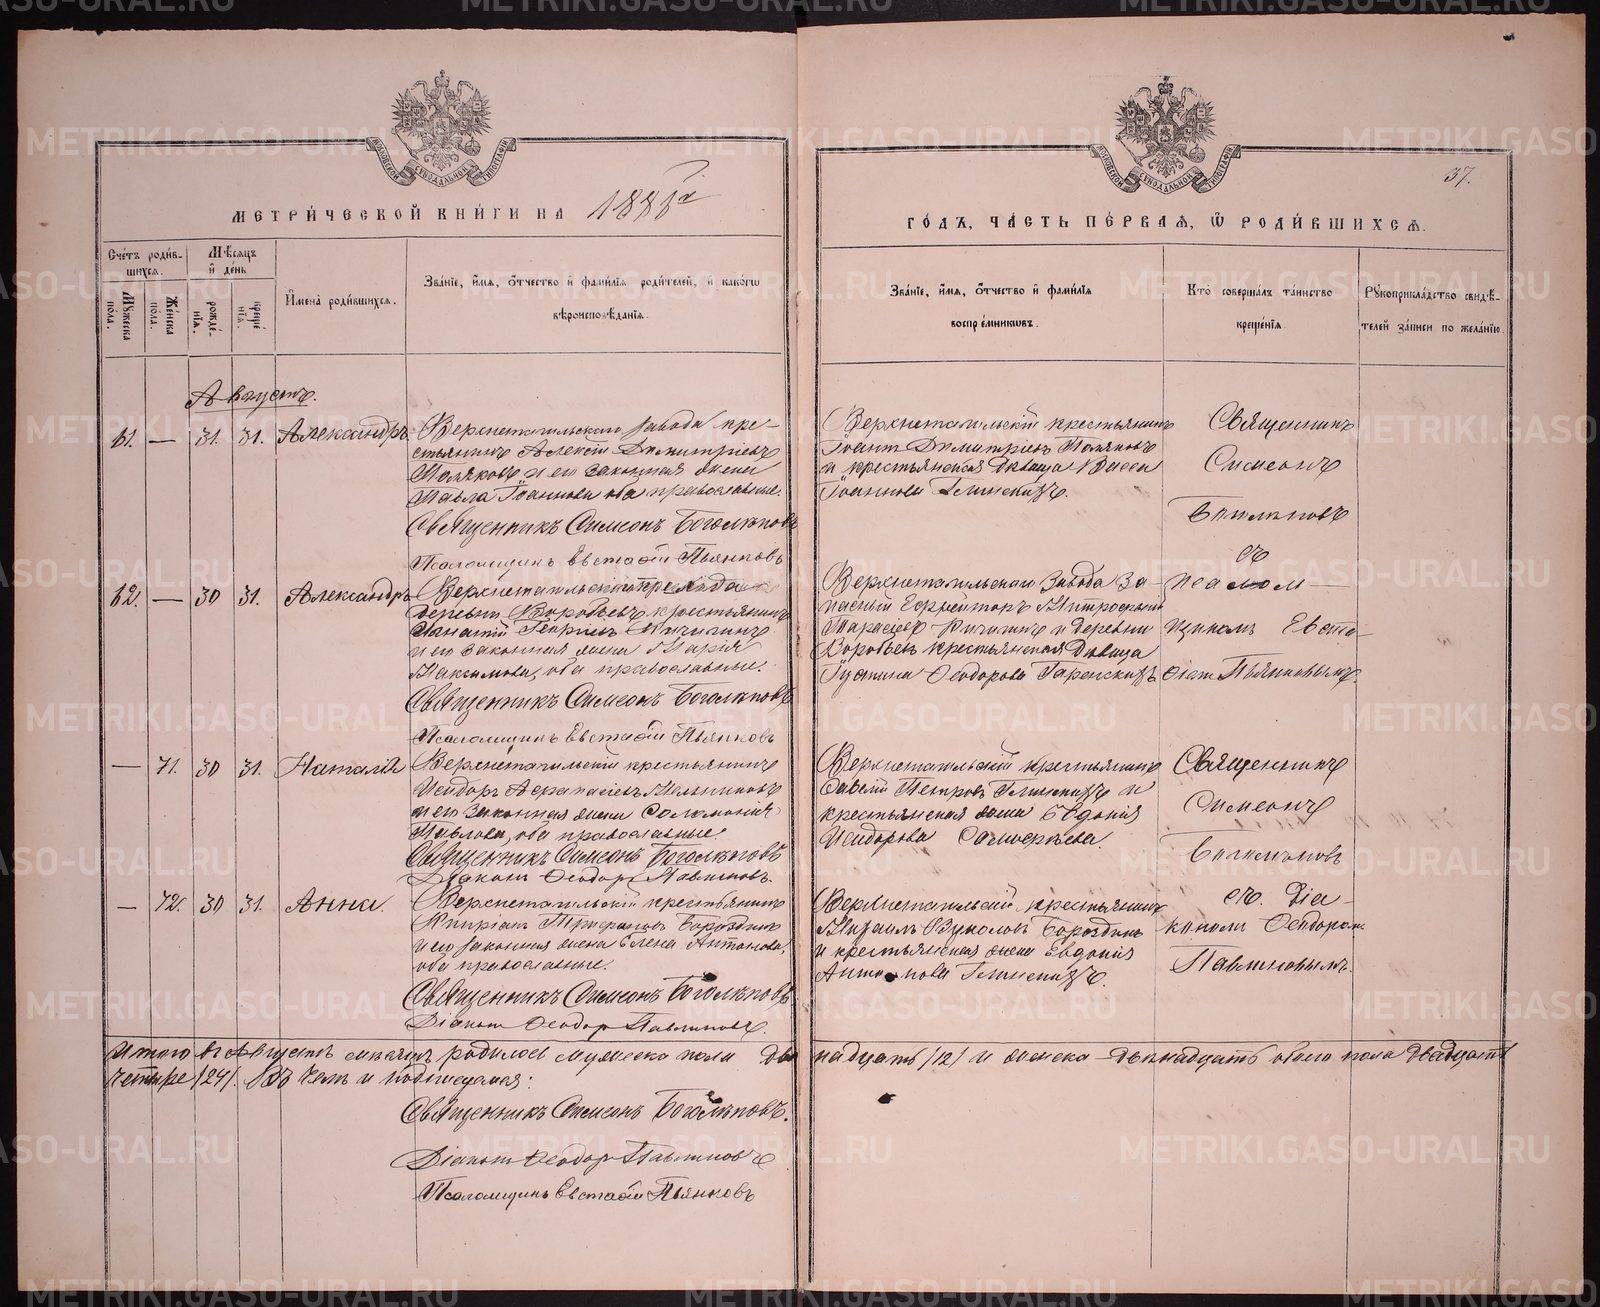 МОСКОВСКОЙ СѴНОДАЛЬНОЙ ТИПОГРАФІИ
МЕТРИ́ЧЕСКОЙ КНИ́ГИ НА
МОСКОВСКОЙ СѴНОДАЛЬНОЙ ТИПОГРАФІИ
37.
ГО́ДЪ, ЧА́СТЬ ПЕ́РВАЯ, Ѡ РОДИ́ВШИХСѦ.
Сче́тъ роди́вшихсѧ.
Мꙋ́жеска по́ла.
Же́нска по́ла.
Мѣ́сѧцъ и де́нь
рожде́нїѧ.
креще́нїѧ.
И҆мена̀ роди́вшихсѧ.
Зва́нїе, и҆́мѧ, ѻ҆́тчество и҆ фами́лїѧ роди́телей, и҆ како́гѡ
вѣроисповѣ́данїѧ.
Зва́нїе, и҆́мѧ, ѻ҆́тчество и҆ фами́лїѧ
воспрїе́мникѡвъ.
Кто̀ соверша́лъ та́инство
креще́нїѧ.
Рꙋкоприкла́дство свидѣ́-
телей за́писи по жела́нїю.
Августъ.
61. — 31. 31. Александръ
Верхнетагильскаго завода кре-
стьянинъ Алексій Димитріевъ
Поляковъ и его законная жена
Павла Іоаннова оба православные.
Священникъ Симеонъ Боголѣповъ
Псаломщикъ Евстафій Пьянковъ
Верхнетагильскій крестьянинъ
Іоаннъ Димитріевъ Поляковъ
и крестьянская дѣвица Васса
Іоаннова Глинскихъ.
Священникъ
Симеонъ
Боголѣповъ
съ
псалом-
щикомъ Евста-
фіемъ Пьянковымъ.
62. — 30 31. Александръ
деревни Воробьевъ крестьянинъ
и его законная жена Марія
Максимова, оба православные.
Священникъ Симеонъ Боголѣповъ
Псаломщикъ Евстафій Пьянковъ
Верхнетагильскаго завода за-
пасный Ефрейторъ Митрофанъ
Тарасовъ Кичигинъ и деревни
Воробьевъ крестьянская дѣвица
Іустина Ѳеодорова
— 71. 30 31. Наталія
Верхнетагильскій крестьянинъ
Исидоръ Мельниковъ
и его законная жена Соломонія
Павлова, оба православные
Священникъ Симеонъ Боголѣповъ
Діаконъ Ѳеодоръ Павлиновъ.
Верхнетагильскій крестьянинъ
Савелій Петровъ Глинскихъ и
крестьянская жена Евдокія
Исидорова
Священникъ
Симеонъ
Боголѣповъ
съ Діа-
кономъ Ѳеодоромъ
Павлиновымъ.
— 72. 30 31. Анна.
Верхнетагильскій крестьянинъ
Кипріанъ Трифоновъ Бороздинъ
и его законная жена Елена Антонова,
оба православные.
Священникъ Симеонъ Боголѣповъ
Діаконъ Ѳеодоръ Павлиновъ.
Верхнетагильскій крестьянинъ
Михаилъ Вуколовъ Бороздинъ
и крестьянская жена Евдокія
Антонова Глинскихъ.
Итого въ Августѣ мѣсяцѣ родилось мужеска пола двѣнадцать /12/ и женска двѣнадцать обоего пола двадцать
четыре /24/. Въ чемъ и подписуемся:
Священникъ Симеонъ Боголѣповъ.
Діаконъ Ѳеодоръ Павлиновъ
Псаломщикъ Евстафій Пьянковъ
METRIKI.GASO-URAL.RU